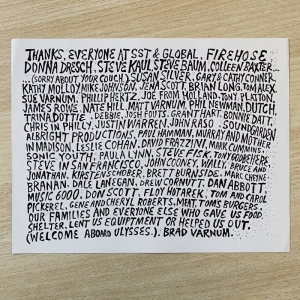 THANKS, EVERYONE AT SST & GLOBAL, FIREHOSE
DONNA DRESCH, STEVE KAUL, STEVE BAUM, COLLEEN BAXTER...
...(SORRY ABOUT YOUR COUCH.) SUSAN SILVER, GARY & CATHY CONNER,
KATHY MOLLOY, MIKE JOHNSON, JENA SCOTT, BRIAN LONG, TOM ALEX,
SUE VARNUM, PHILLIP HERTZ, JOE FROM HOLLAND, TONY, PLATON,
JAMES ROWE, NATE HILL, MATT VARNUM, PHIL NEWMAN, DUTCH,
TRINA DOTTIE, DEBBIE, JOSH FOUTS, GRANT HART, BONNIE DATT,
CHRIS IN PHILLY, JUSTIN WARREN, JOHN RASO, SOUNDGARDEN
ALBRIGHT PRODUCTIONS, PAUL HAMMAN, MURRAY AND MOTHER
IN MADISON, LESLIE COHAN, DAVID FRAZZINI, MARK CUMMINGS
SONIC YOUTH, PAULA LYNN, STEVE FISK,
STEVE IN SAN FRANCISCO, JOHN COONEY, MOLLY, BRUCE AND
JONATHAN, KIRSTEN SCHOBER, BRETT BURNSIDE, MARC CHEYNE
BRANAN, DALE LANEGAN, DREW CORNUTT, DAN ABBOTT,
MUSIC 6000, DON SCOTT, FLOY HOTAREK, TOM AND CAROL
PICKEREL, GENE AND CHERYL ROBERTS, MEAT, TOMS BURGERS,
OUR FAMILIES AND EVERYONE ELSE WHO GAVE US FOOD,
SHELTER, LENT US EQUIPTMENT OR HELPED US OUT.
(WELCOME ABOARD ULYSSES.) BRAD VARNUM.